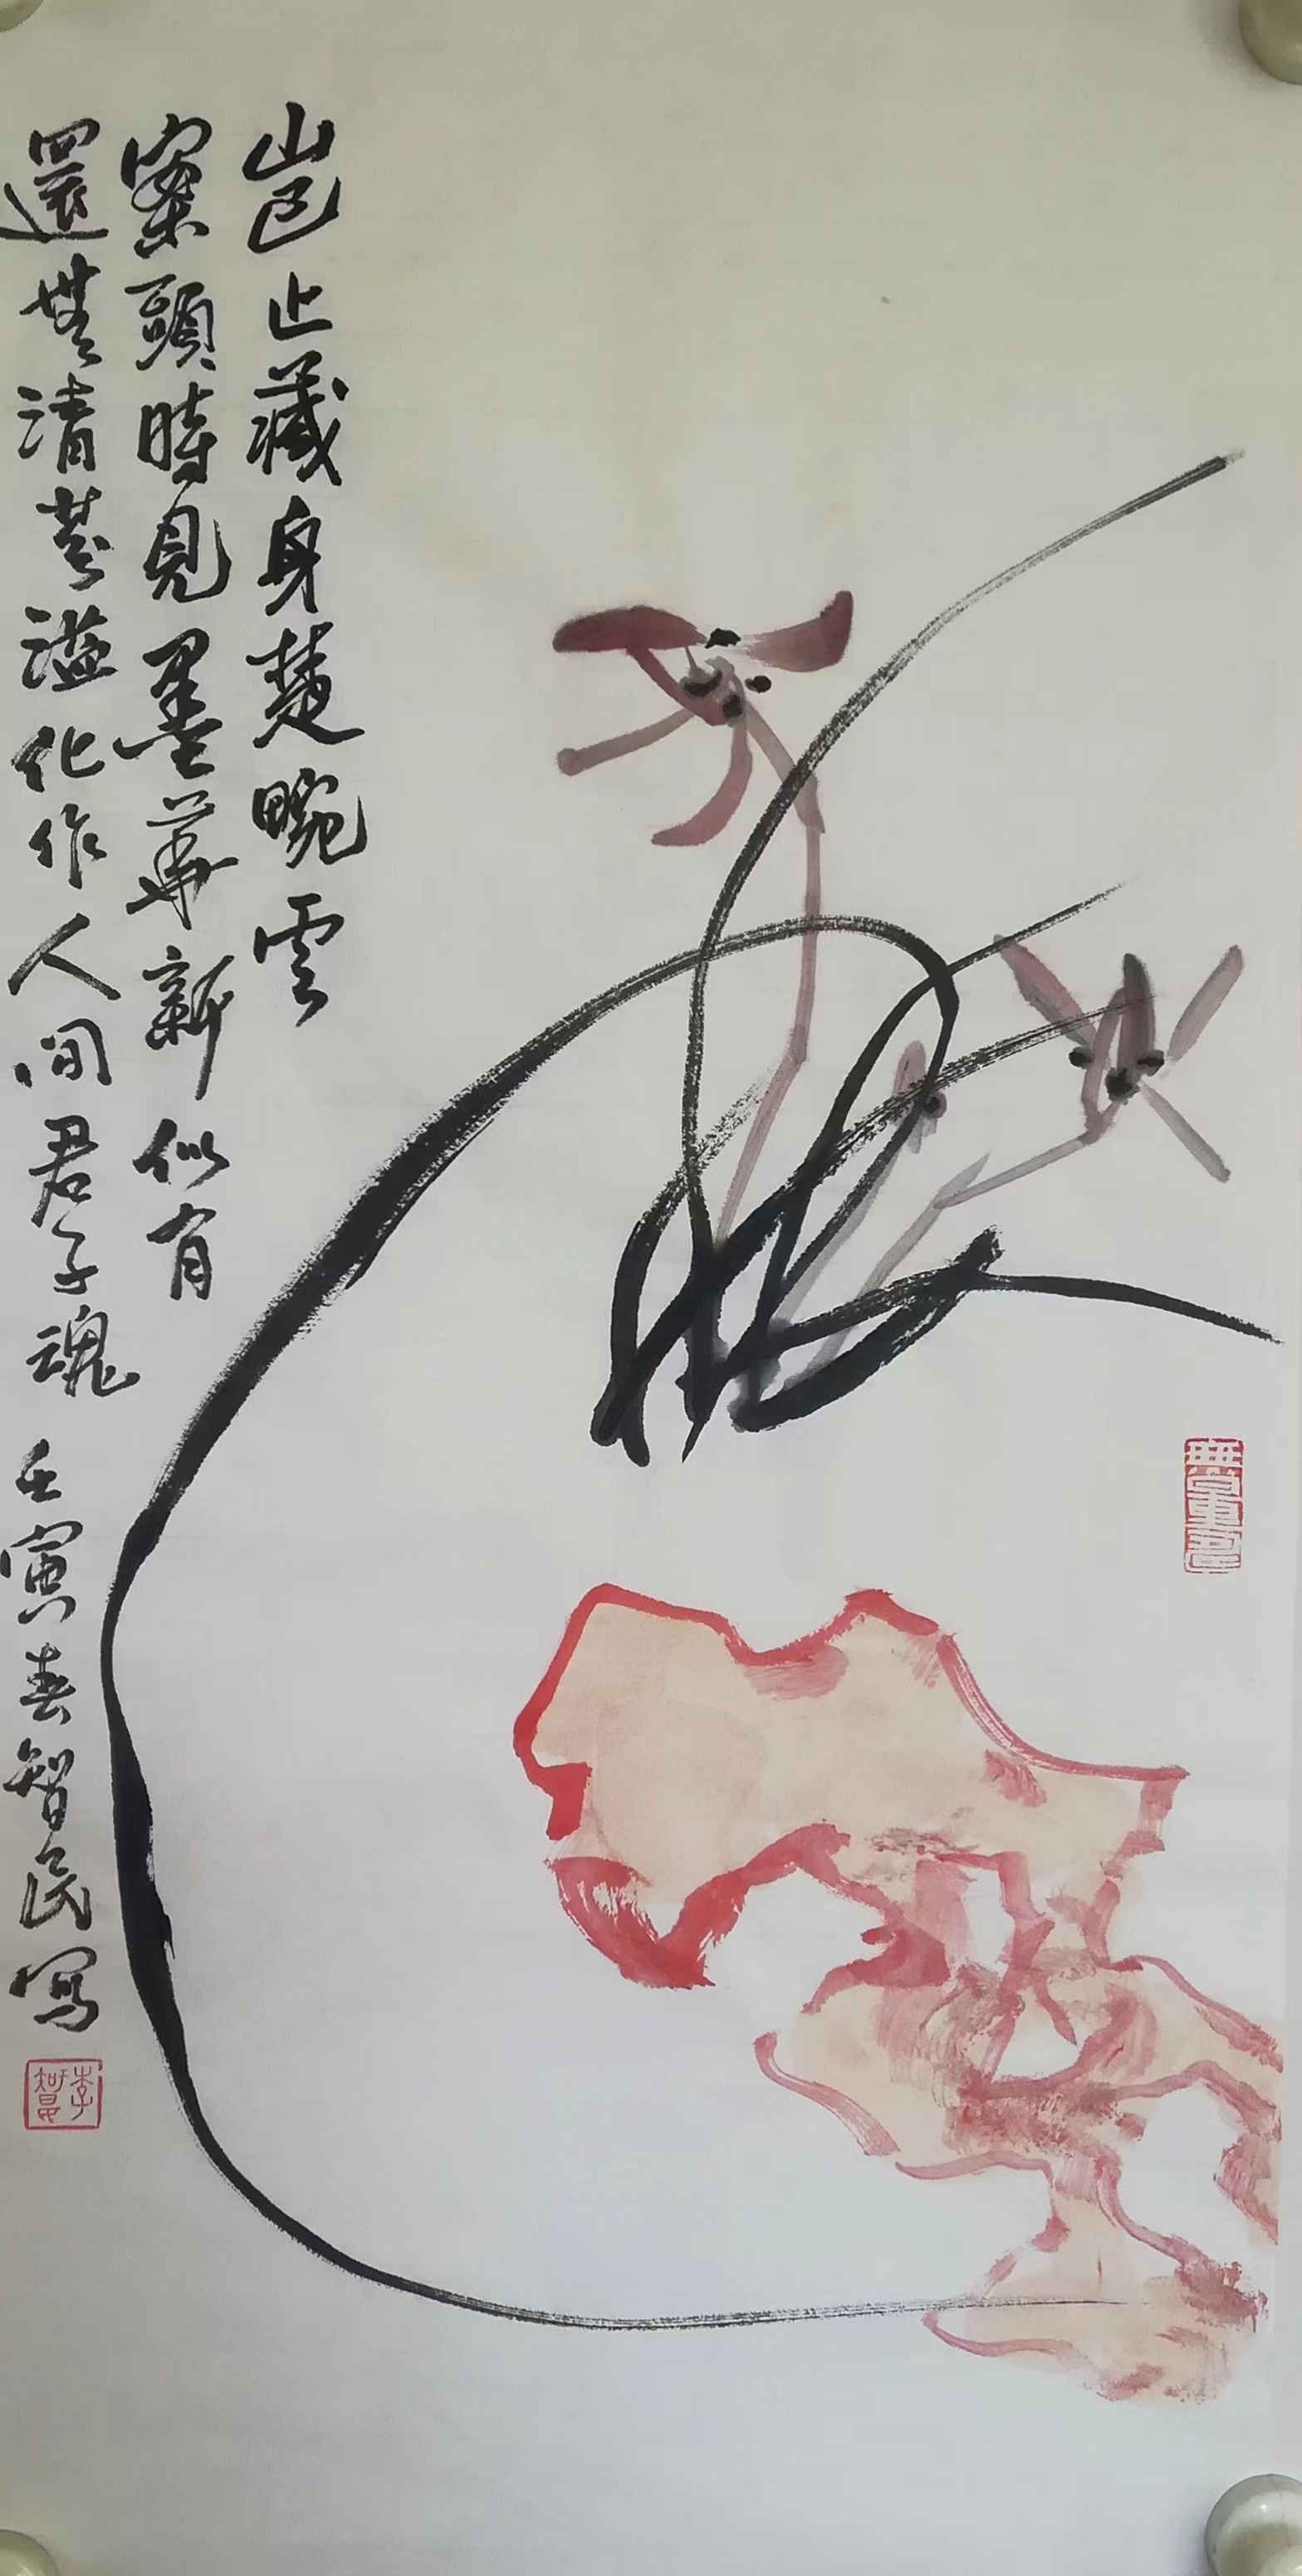 豈止藏身楚畹雲
案頭時見墨華新似有
還無清芬溢化作人間君子魂 壬寅春智民寫